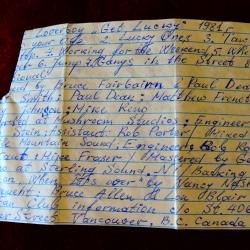 Loverboy "Get Lucky" 1981
your life : Lucky Ones 3. Jaw
Working for the Weekend 5. Wh
6. jump : 7. Gangs in the Street 8.
by Bruce Fairbairn & Paul Dea
Smith : Paul Dean : Matthew Frenet
Mike Reno
at Mushroom Studios : Engineer
Assistant Rob Porter / Mixed
Mountain Sound. Engineer Bob Ro
Mike Fraser / Mastered by G
at Sterling Sound. N.Y / Backing
on When It's over by Nancy Na
Bruce Allen & Lou Blair
Club information c/o St. 406
Street Vancouver, B.C. Canada